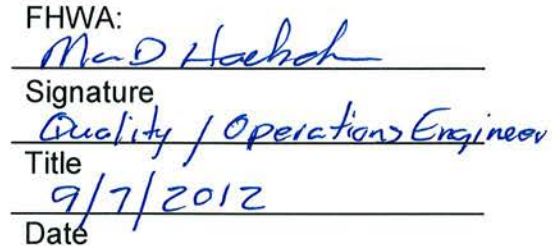 FHWA:
Signature
Quality / Operations Engineer
Title
9/7/2012
Date